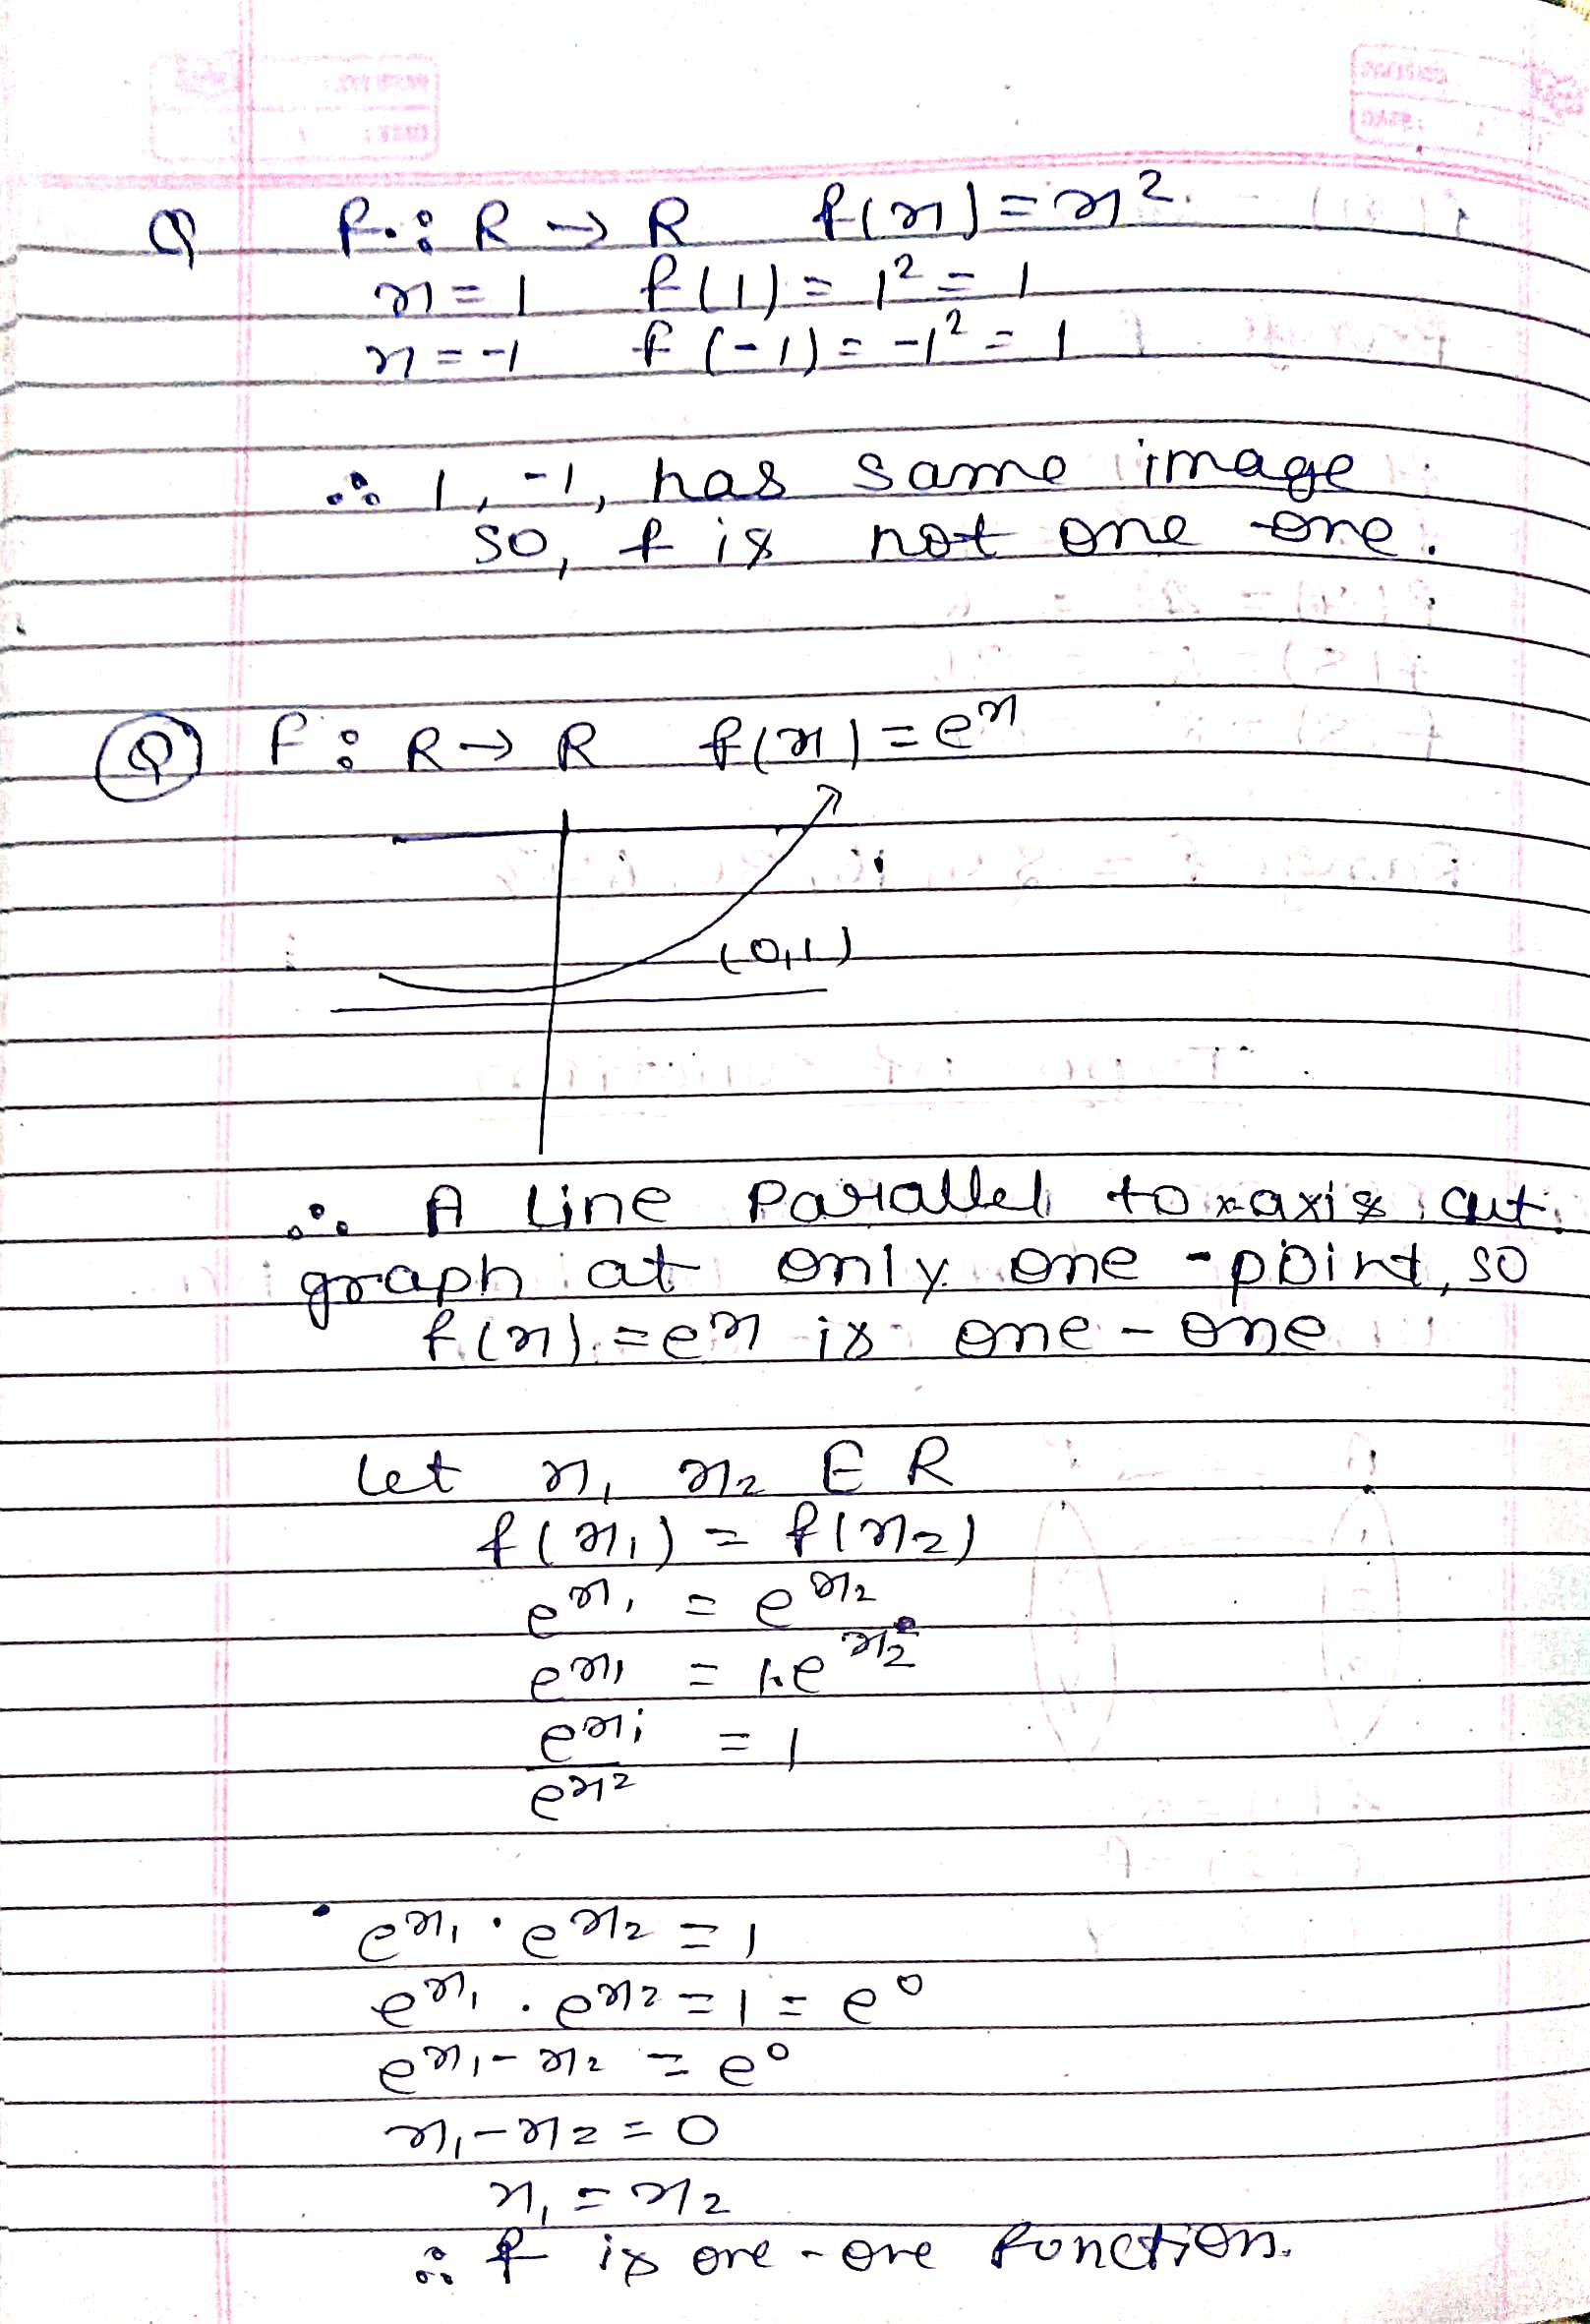 Q f: R → R f(x) = x².
x = 1 f(1) = 1² = 1
x = -1 f(-1) = -1² = 1
∴ 1, -1, has same image
so, f is not one one.
Q f: R → R f(x) = eˣ
(0,1)
∴ A line Parallel to x axis cut
graph at only one - point, so
f(x) = eˣ is one - one
let x₁ x₂ ∈ R
f(x₁) = f(x₂)
eˣ₁ = eˣ₂
eˣ₁ = 1.eˣ₂
eˣ₁ = 1
eˣ₂
eˣ₁ . eˣ₂ = 1
eˣ₁ . eˣ₂ = 1 = e⁰
eˣ₁ - ˣ₂ = e⁰
x₁ - x₂ = 0
x₁ = x₂
∴ f is one - one function.